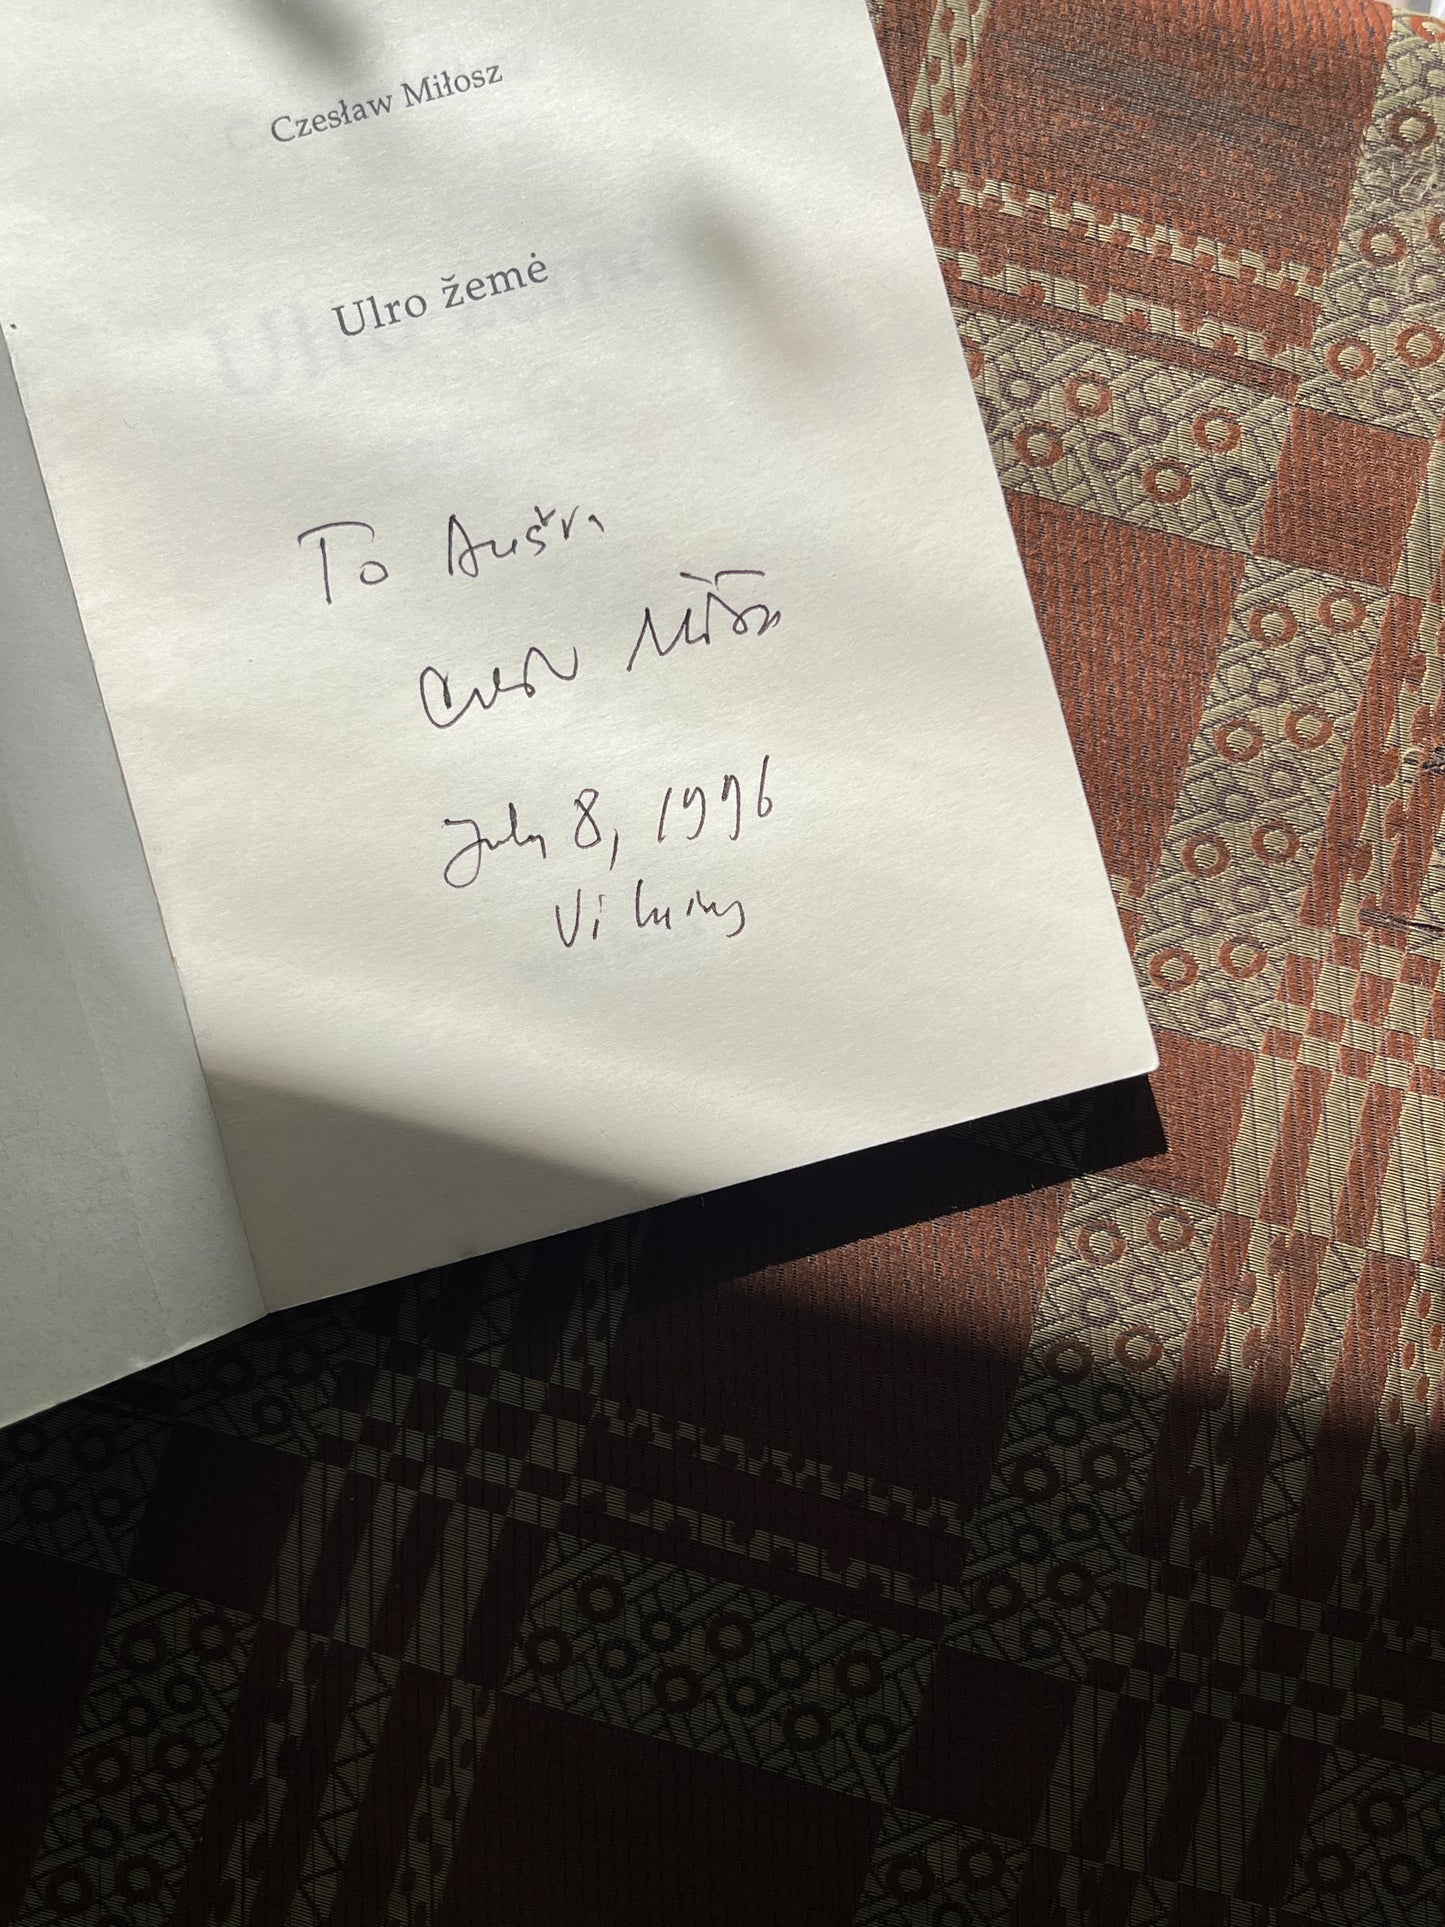 Czesław Miłosz
Ulro žemė
To Aušra
Czesław Miłosz
July 8, 1996
Vilnius